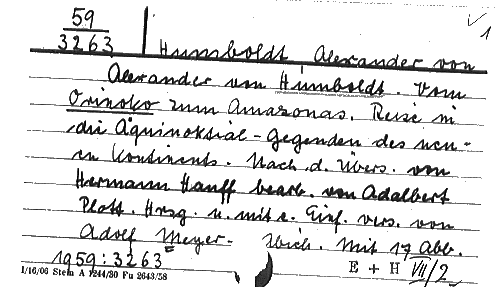 59
3263
1
Humboldt Alexander von
Alexander von Humboldt. Vom
Orinoko zum Amazonas. Reise in
die Äquinoktial-Gegenden des neu-
en Kontinents. Nach d. Übers. von
Hermann Hauff bearb. von Adalbert
Plott. Hrsg. u. mit e. Einf. vers. von
Adolf Meyer-Abich. Mit 17 Abb.
1959:3263
E + H VII/2
1/16/06 Stem A 1244/80 Fu 2643/58